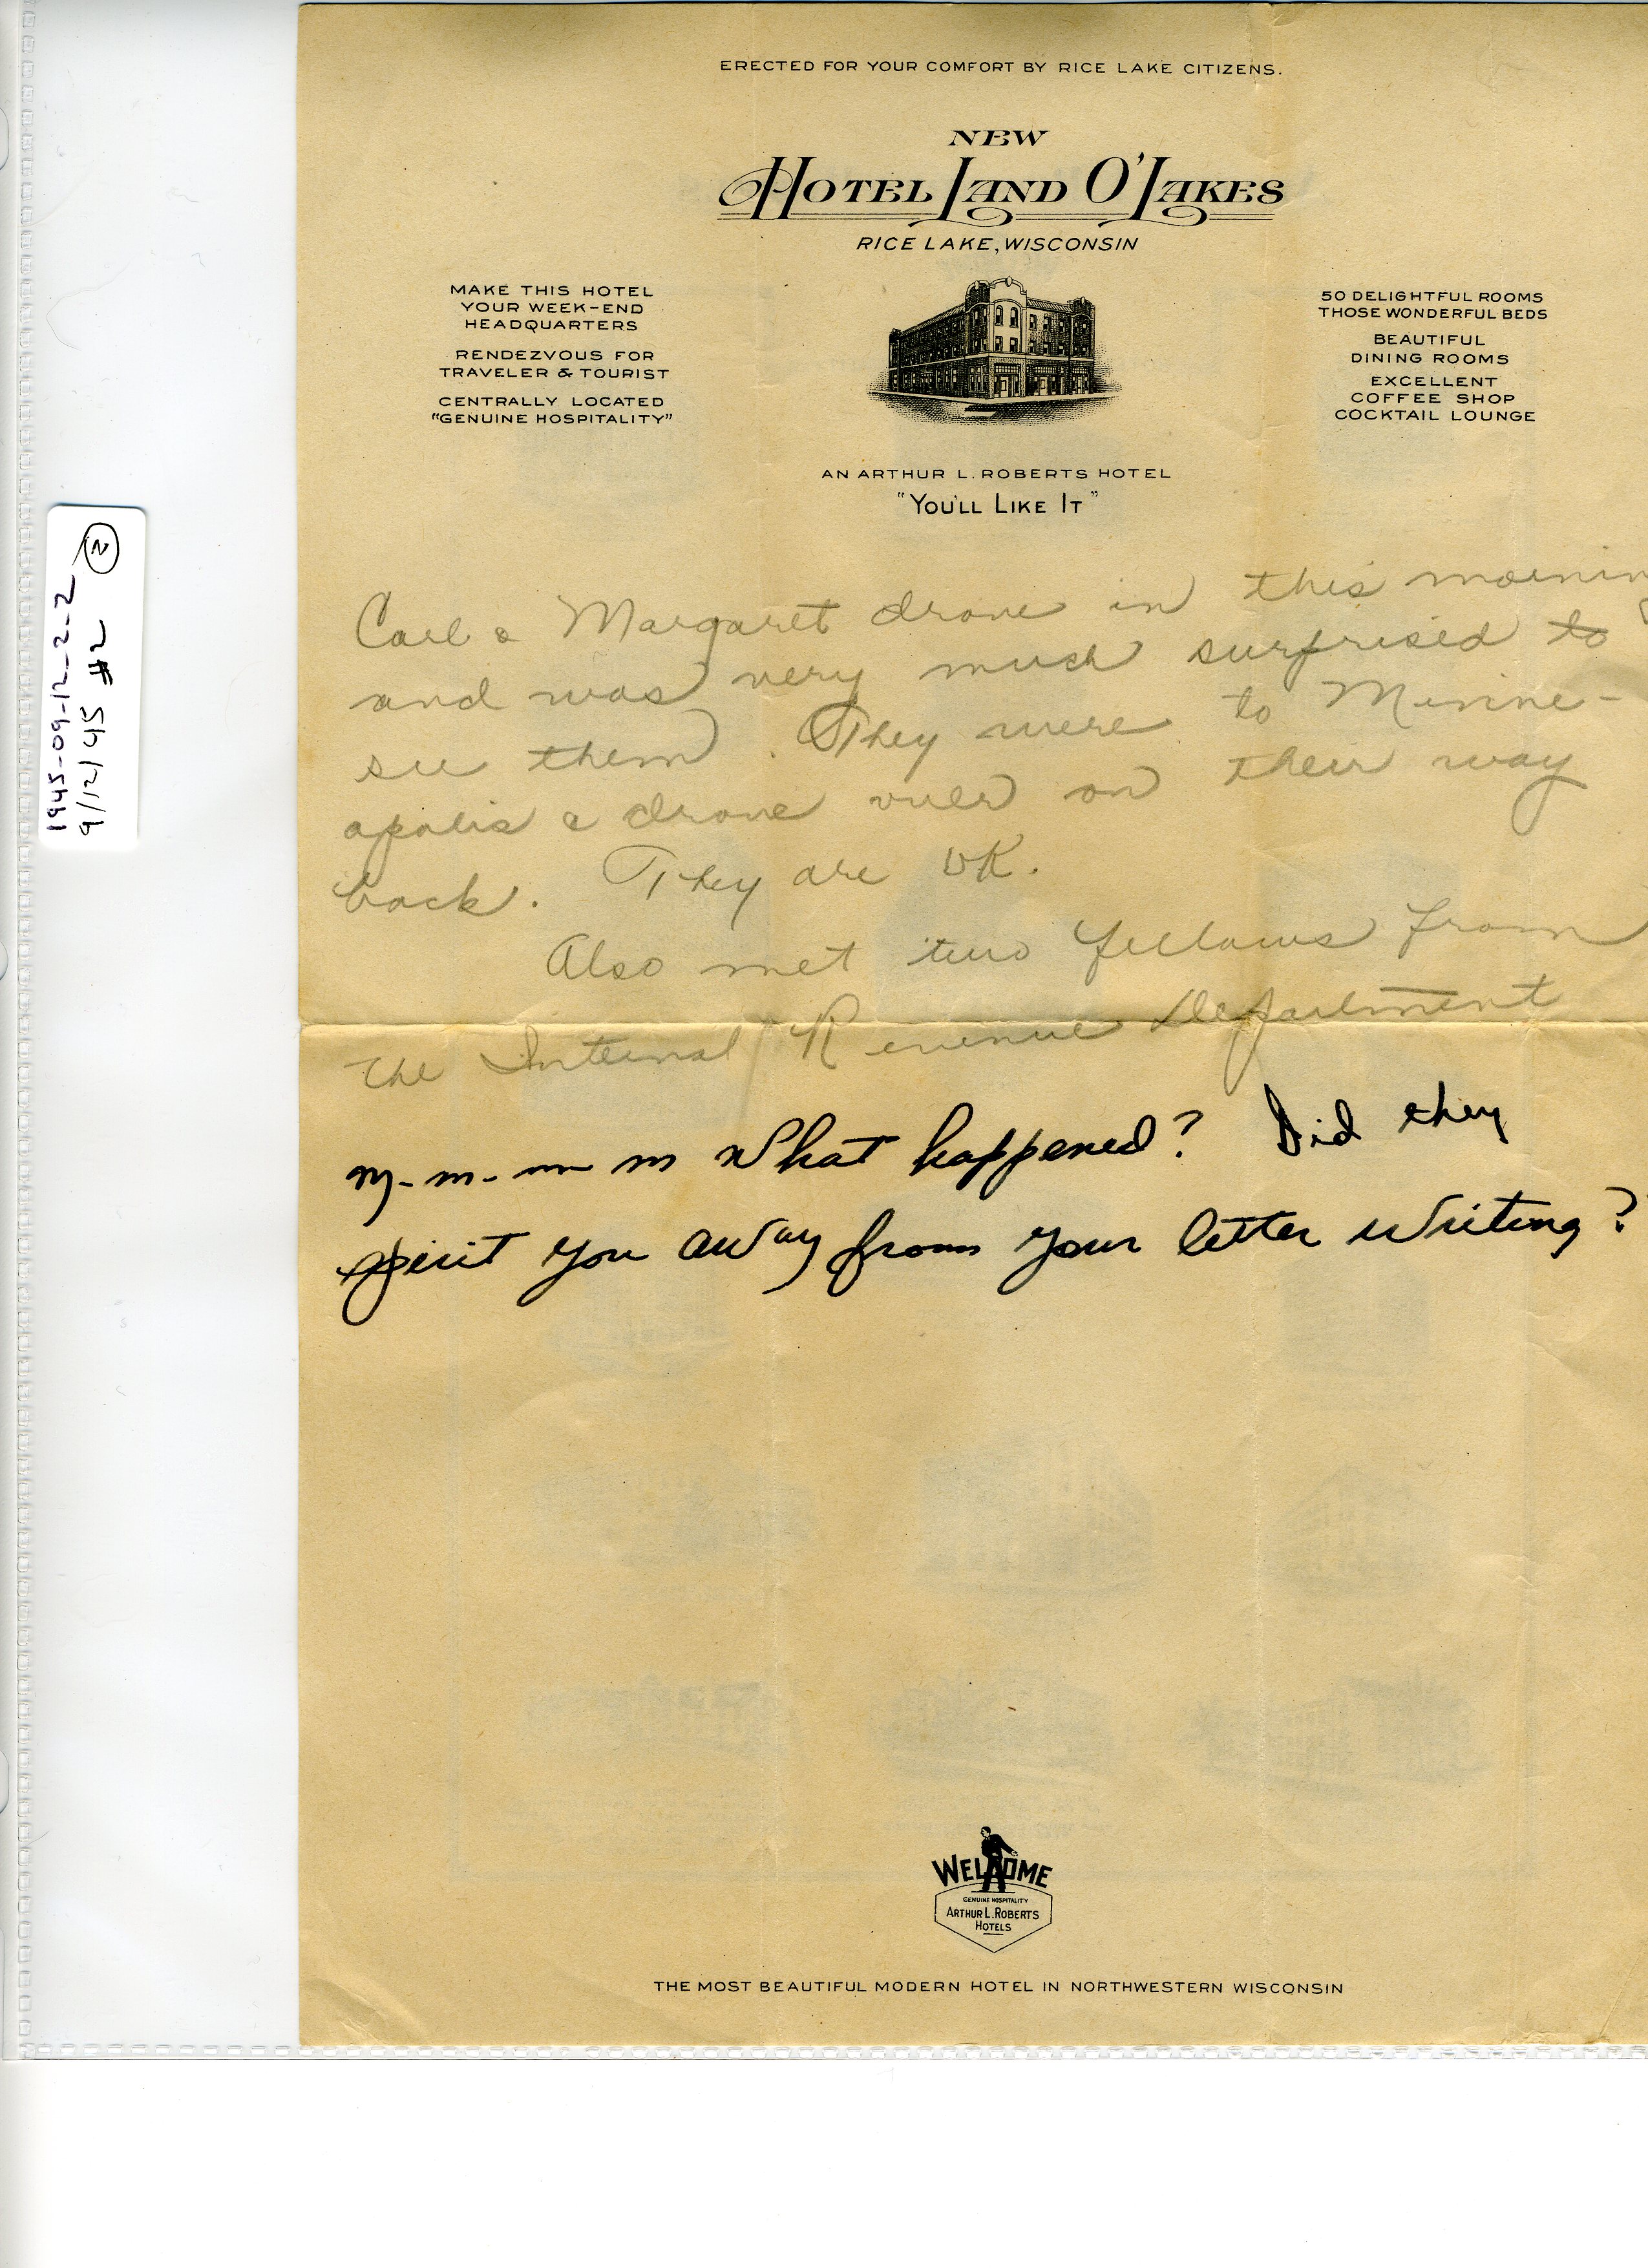 ERECTED FOR YOUR COMFORT BY RICE LAKE CITIZENS.
NEW
HOTEL LAND O'LAKES
RICE LAKE, WISCONSIN
MAKE THIS HOTEL
YOUR WEEK-END
HEADQUARTERS
RENDEZVOUS FOR
TRAVELER & TOURIST
CENTRALLY LOCATED
"GENUINE HOSPITALITY"
50 DELIGHTFUL ROOMS
THOSE WONDERFUL BEDS
BEAUTIFUL
DINING ROOMS
EXCELLENT
COFFEE SHOP
COCKTAIL LOUNGE
AN ARTHUR L. ROBERTS HOTEL
"YOU'LL LIKE IT"
1945-09-12_2_2
9/12/45 #2
2
Carl & Margaret drove in this morning
and was very much surprised to
see them. They were to Minne-
apolis & drove over on their way
back. They are OK.
Also met two fellows from
the Internal Revenue Department
M-m-m m What happened? Did they
spirit you away from your letter writing?
WELCOME
GENUINE HOSPITALITY
ARTHUR L. ROBERTS
HOTELS
THE MOST BEAUTIFUL MODERN HOTEL IN NORTHWESTERN WISCONSIN